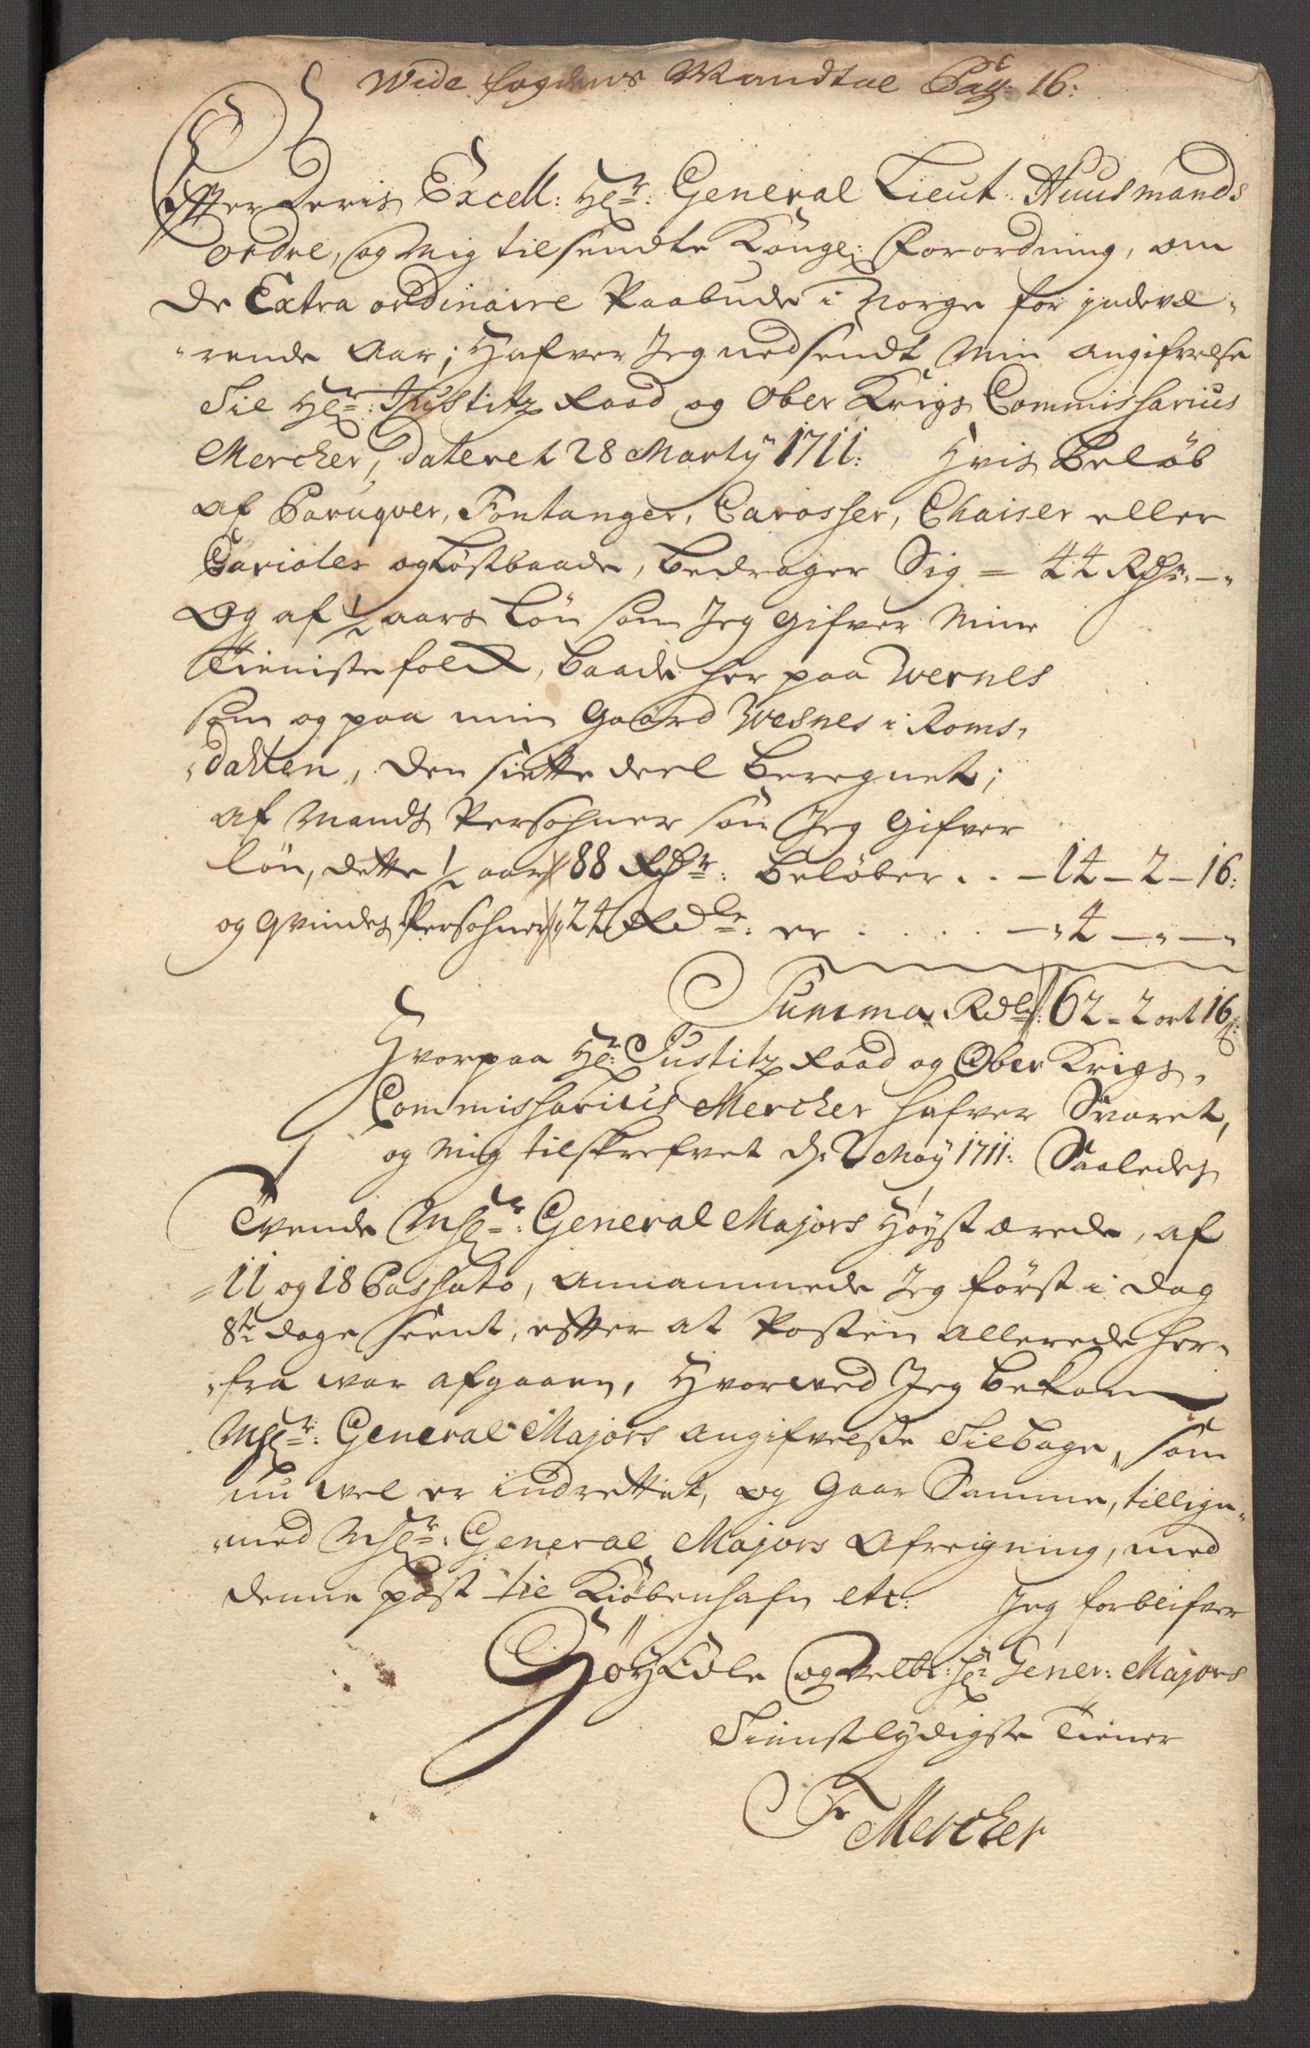 Wide fogdens Mandtal Pag: 16:
Effter Deris Excell: Hr: General Lieut: Huusmands
ordre, og mig tilsendte Kongl: Forordning, om
de Extra ordinaire Paabude i Norge for indevæ-
-rende Aar; Hafver Jeg nedsendt min angifvelse
til Hr: Justitz Raad og Ober Krigs Commissarius
Mercher, dateret 28 Marty 1711: Hvis beløb
af Paruqver, Fontanger, Carosser, Chaiser eller
Carioler og Løstbaade, bedrager Sig = 44 Rdr: - "
Og af 1/2 aars løn som Jeg gifver mine
Tieniste folck, baade her paa Wernes
som og paa min Gaard Wesnes i Roms-
dahlen, den siette deel beregnet;
af Mands Persohner som Jeg gifver
løn, dette 1/2 aar 88 Rdr: beløber . . - 14 - 2 - 16:
og Qvindes Persohner 24 Rdlr: er . . . . - " 4 - " - "
Summa Rdlr: 62 - 2 ort 16 s:
Hvorpaa Hr: Justitz Raad og Ober Krigs-
Commissarius Mercher hafver Svaret,
og mig tilskrefvet d: 2 May 1711: Saaledes
Tvende Mhr: General Majors Høystærede, af
11 og 18 Passato, annammede Jeg først i dag
8te dage seent, efter at Posten allerede her-
-fra war afgaaen, Hvorved Jeg bekom
Mhr: General Majors angifvelse tilbage, som
nu vel er indrettet, og gaar Samme, tillige
med Mhr: General Majors Afreigning, med
denne post til Kiøbenhafn etc: Jeg forblifver
HøyEdle og Velb: Hr Gener: Majors
Tienstlydigste Tiener
Fr Mercher